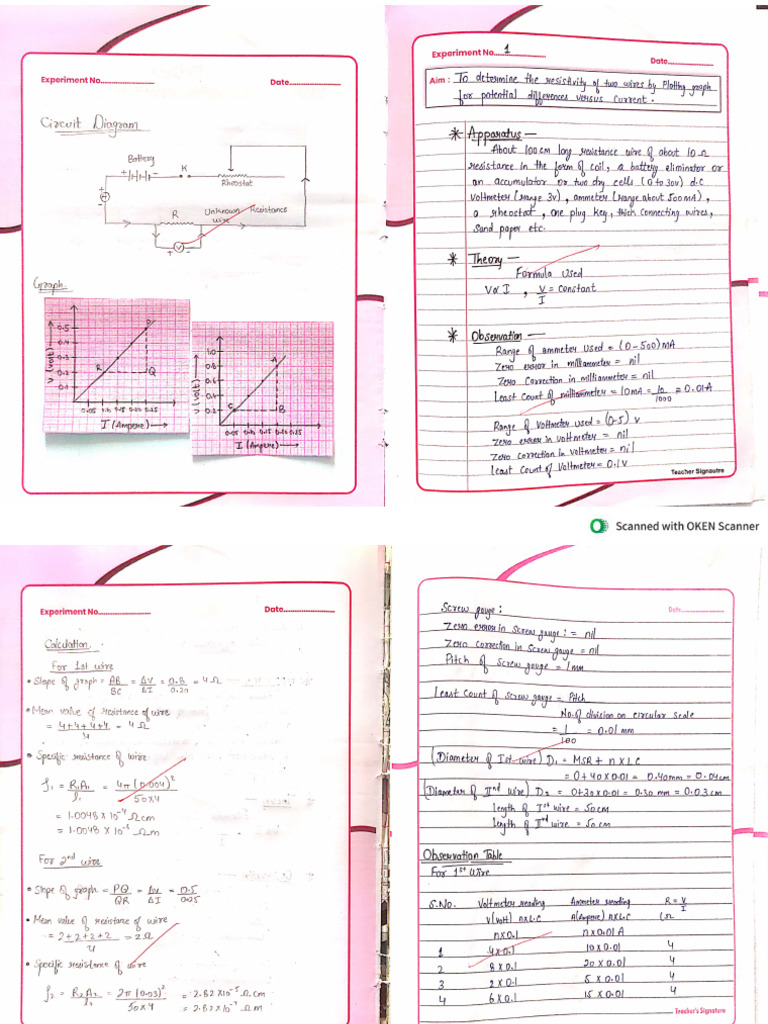 Experiment No.
Date
Circuit Diagram
Battery
+ -
K
Rheostat
+
-
R
Unknown Resistance
wire
+ V -
Graph
V (volt)
0.5
0.4
0.3
0.2
0.1
P
R
Q
0.05 0.1 0.15 0.2 0.25
I (Ampere)
V (volt)
1.0
0.8
0.6
0.4
0.2
A
C
B
0.05 0.1 0.15 0.20 0.25
I (Ampere)
Experiment No. 1
Date
Aim : To determine the resistivity of two wires by Plotting graph
for potential differences versus current.
* Apparatus —
About 100 cm long resistance wire of about 10 Ω
resistance in the form of coil, a battery eliminator or
an accumulator or two dry cells (0 to 30v) d.c
voltmeter (range 3v), ammeter (range about 500 mA),
a rheostat, one plug key, thick connecting wires,
sand paper etc.
* Theory —
Formula used
V∝I , V/I = constant
* Observation —
Range of ammeter used = (0-500) mA
Zero error in milliammeter = nil
Zero Correction in milliammeter = nil
Least Count of milliammeter = 10mA = 10/1000 = 0.01A
Range of voltmeter used = (0-5) v
Zero error in voltmeter = nil
Zero correction in voltmeter = nil
Least Count of Voltmeter = 0.1v
Teacher Signautre
Scanned with OKEN Scanner
Experiment No.
Date
Calculation
For 1st wire
• Slope of graph = AB/BC = ΔV/ΔI = 0.8/0.20 = 4 Ω
• Mean value of resistance of wire
= 4+4+4+4/4 = 4 Ω
• Specific resistance of wire
ρ₁ = R₁A₁/l₁ = 4π(0.004)²/50×4
= 1.0048 × 10⁻⁴ Ωcm
= 1.0048 × 10⁻⁶ Ωm
For 2nd wire
• Slope of graph = PQ/QR = ΔV/ΔI = 0.5/0.25
• Mean value of resistance of wire
= 2+2+2+2/4 = 2Ω
• Specific resistance of wire
ρ₂ = R₂A₂/l₂ = 2π(0.03)²/50×4 = 2.82 × 10⁻⁵ Ω.cm
= 2.82 × 10⁻⁷ Ω m
Date
Screw gauge :
Zero error in screw gauge : = nil
Zero correction in screw gauge = nil
Pitch of screw gauge = 1mm
Least Count of screw gauge = Pitch
No. of division on circular scale
= 1/100 = 0.01 mm
(Diameter of Ist wire) D₁ = MSR + n×L.C
= 0+40×0.01 = 0.40mm = 0.04cm
(Diameter of IInd wire) D₂ = 0+30×0.01 = 0.30 mm = 0.03cm
length of Ist wire = 50cm
length of IInd wire = 50 cm
Observation Table
For 1st wire
S.No. Voltmeter reading Ammeter reading R = V/I
V(volt) n×L.C A(Ampere) n×L.C (Ω
n×0.1 n×0.01 A
1 4×0.1 10×0.01 4
2 8×0.1 20×0.01 4
3 2×0.1 5×0.01 4
4 6×0.1 15×0.01 4
Teacher's Signature